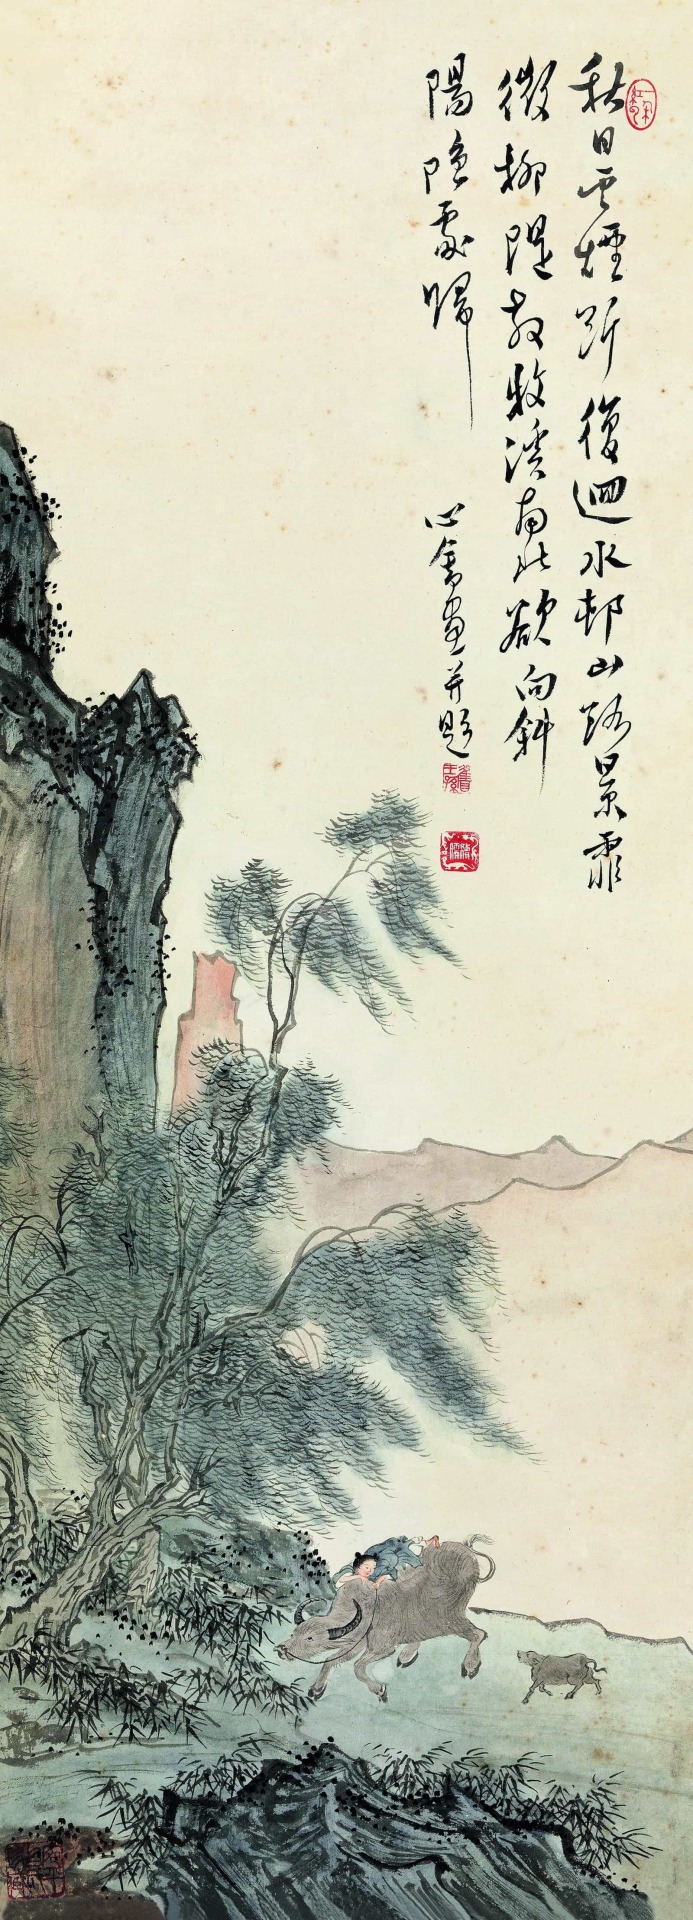 秋日雲煙斷復迴水邨山路景霏
微柳隄放牧溪南北欲向斜
陽隱處歸
心畬畫并題
舊王孫
溥儒